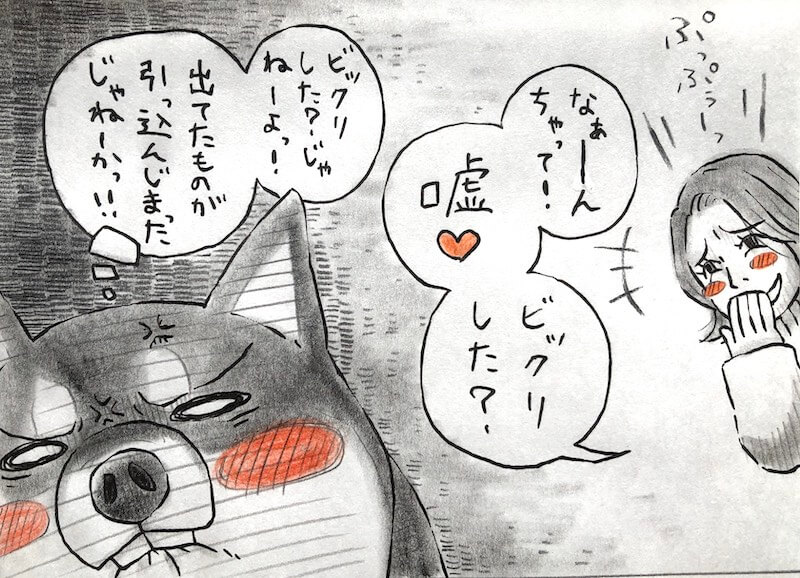 ぷっぷぅーっ
なぁーん
ちゃって！
嘘
ビックリ
した？
ビックリ
した？じゃ
ねーよっ！
出てたものが
引っ込んじまった
じゃねーかっ！！